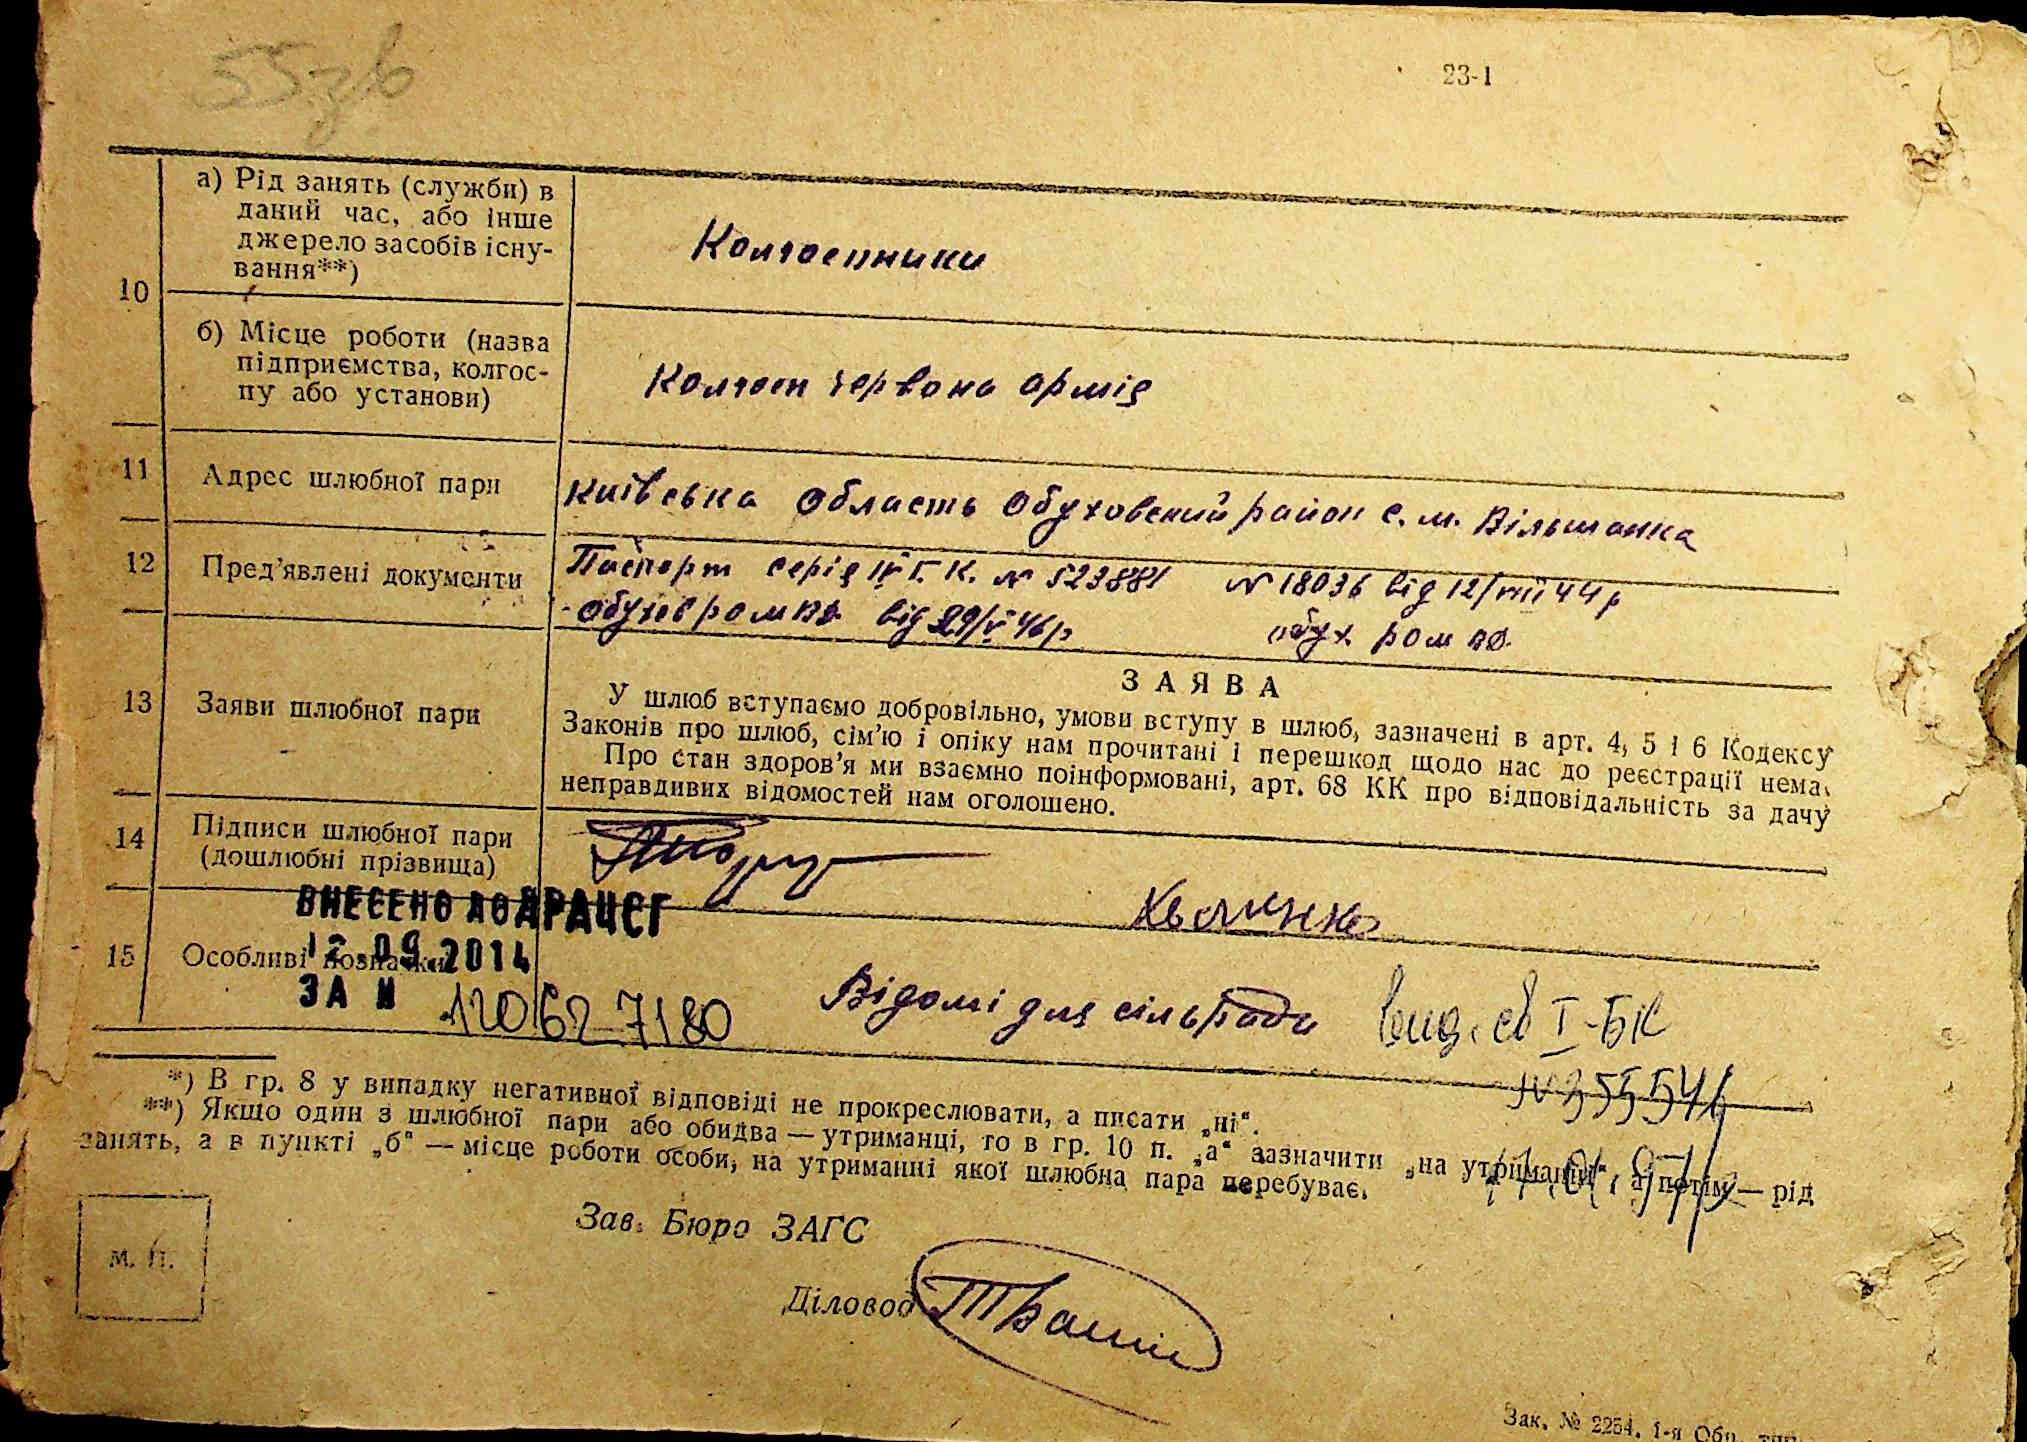 55зв
23-1
10
а) Рід занять (служби) в
даний час, або інше
джерело засобів існу-
вання**)
Колгоспники
б) Місце роботи (назва
підприємства, колгос-
пу або установи)
Колгосп червона армія
11
Адрес шлюбної пари
Київська область Обуховский район с. м. Вільшанка
12
Пред’явлені документи
Паспорт серія IV Г. К. № 523881 № 18036 від 12/VIII 44 р
Обухов ром від 29/V 46 р обух ром
13
Заяви шлюбної пари
ЗАЯВА
У шлюб вступаємо добровільно, умови вступу в шлюб, зазначені в арт. 4, 5 і 6 Кодексу
Законів про шлюб, сім’ю і опіку нам прочитані і перешкод щодо нас до реєстрації нема.
Про стан здоров’я ми взаємно поінформовані, арт. 68 КК про відповідальність за дачу
неправдивих відомостей нам оголошено.
14
Підписи шлюбної пари
(дошлюбні прізвища)
ВНЕСЕНО ДО ДРАЦСГ
12.09.2014
ЗА №
120627180
15
Особливі позначки
Відомі для сільради
вид. св І-БК
№ 355541
*) В гр. 8 у випадку негативної відповіді не прокреслювати, а писати „ні“.
**) Якщо один з шлюбної пари або обидва — утриманці, то в гр. 10 п. „а“ зазначити „на утриманні“, а потім — рід
занять, а в пункті „б“ — місце роботи особи, на утриманні якої шлюбна пара перебуває.
Зав. Бюро ЗАГС
М. П.
Діловод
Зак. № 2254. 1-я Обл. тип.